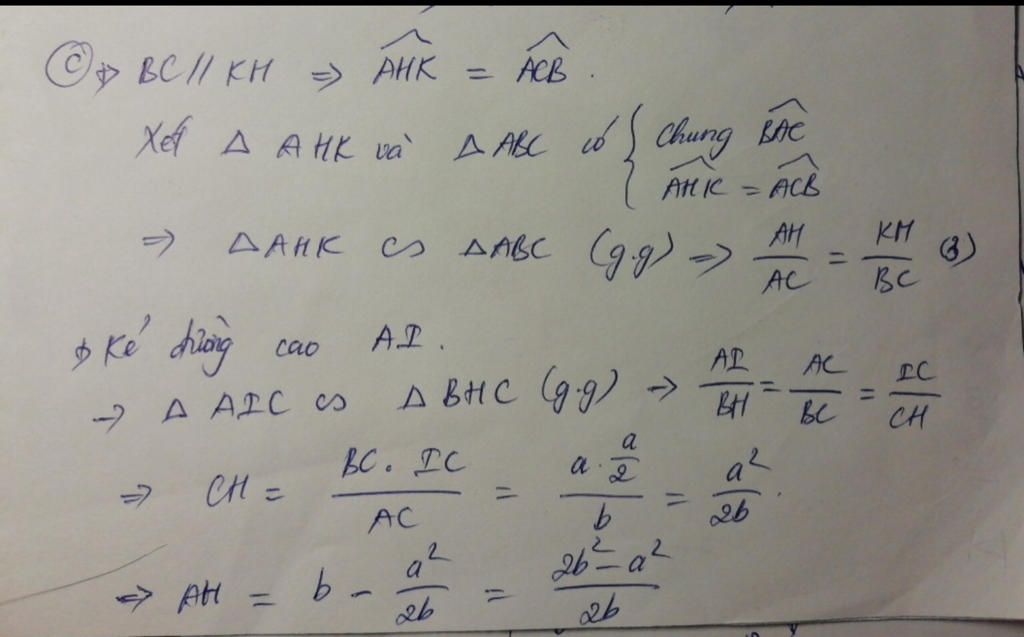 c) +) BC // KH ⇒ \widehat{AHK} = \widehat{ACB}.
Xét Δ AHK và Δ ABC có { chung \widehat{BAC}
\widehat{AHK} = \widehat{ACB}
⇒ ΔAHK ∽ ΔABC (g.g) ⇒ \frac{AH}{AC} = \frac{KH}{BC} (3)
+) Kẻ đường cao AI.
→ Δ AIC ∽ Δ BHC (g.g) → \frac{AI}{BH} = \frac{AC}{BC} = \frac{IC}{CH}
⇒ CH = \frac{BC. IC}{AC} = \frac{a.\frac{a}{2}}{b} = \frac{a^2}{2b}.
⇒ AH = b - \frac{a^2}{2b} = \frac{2b^2 - a^2}{2b}